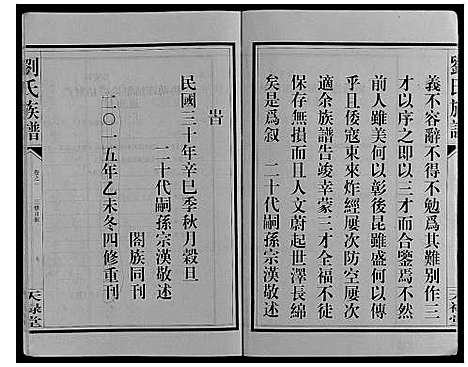 劉氏族譜
義不容辭不得不勉爲其難別作三
才以序之即以三才而合鑒焉不然
前人雖美何以彰後昆雖盛何以傳
乎且倭寇東來炸經屢次防空屢次
適余族譜告竣幸蒙三才全福不徒
保存無損而且人文蔚起世澤長綿
矣是爲叙 二十代嗣孫宗漢敬述
天祿堂
旹
民國三十年辛巳季秋月穀旦
二十代嗣孫宗漢敬述
二〇一五年乙未冬四修重刊
闔族同刊
劉氏族譜
卷之一
天祿堂